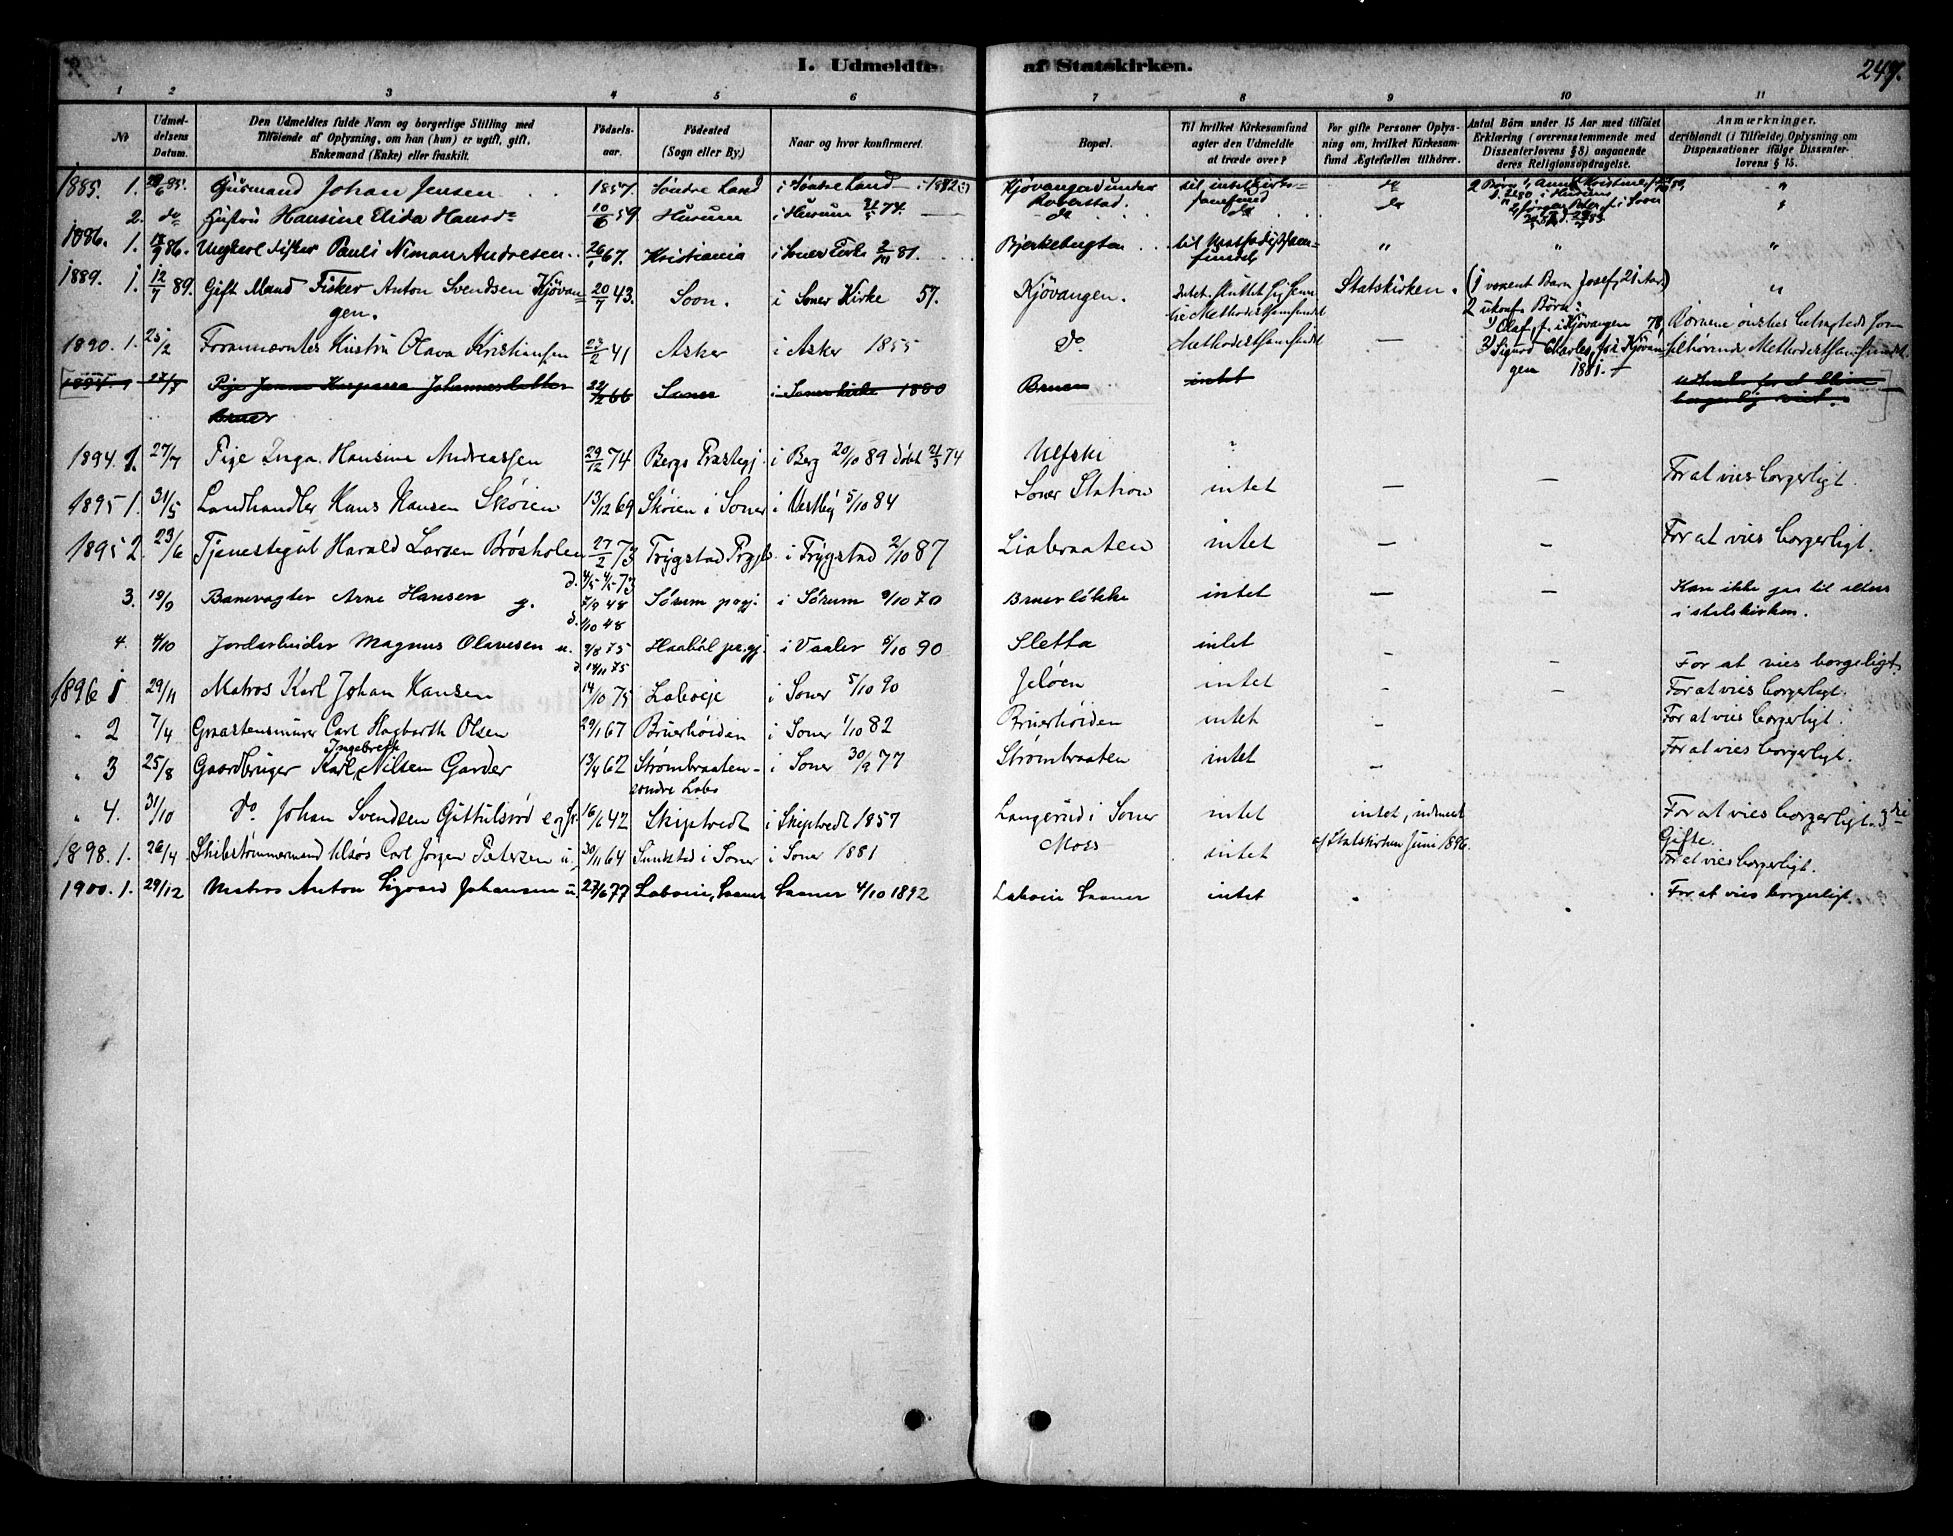 I. Udmeldte af Statskirken. 247.
1 2 3 4 5 6 7 8 9 10 11
No
Udmel-
delsens
Datum.
Den Udmeldtes fulde Navn og borgerlige Stilling med
Tilföiende af Oplysning, om han (hun) er ugift, gift,
Enkemand (Enke) eller fraskilt.
Födsels-
aar.
Födested
(Sogn eller By.)
Naar og hvor konfirmeret.
Bopæl.
Til hvilket Kirkesamfund
agter den Udmeldte
at træde over?
For gifte Personer Oplys-
ning om, hvilket Kirkesam-
fund Ægtefællen tilhörer.
Antal Börn under 15 Aar med tilföiet
Erklæring (overensstemmende med
Dissenterlovens § 8) angaaende
deres Religionsopdragelse.
Anmærkninger,
deriblandt (i Tilfælde) Oplysning om
Dispensationer ifölge Dissenter-
lovens § 15.
1885. 1. Gusmand Johan Jensen 1857. Söndre Land i Söndre Land 1872 Kjövangen under do 2 Börn
2. do Hustru Hansine Elida Hansd. 10/6 59. Hurum i Hurum 74. do do
1886. 1. 86. Ungkarl Fisker Pauli Niman Andresen 26/1 67. Kristiania i Soner Kirke 81. Bjerkebugten til Methodistsam- " " "
fundet
1889. 1. 12/7 89. Gift Mand Fisker Anton Svendsen Kjövan- 20/7 43. Soon. i Soner Kirke 57. Kjövangen. Intet. Sluttet sig Statskirken. (1 voxent Barn Josef, 21 Aar.) "
gen. Methodistsamfundet 2 ukonf. Börn:
1) Olaf, f. i Kjövangen 78,
1890. 1. 25/2 Forannævntes Hustru Olava Kristiansen 23/2 41 Asker i Asker 1855 Do Methodistsamfundet — 2) Sigurd Charles, f. i Kjövan- Börnene önskes
gen 1881. tilhörende Methodistsamfundet.
1894. 1 27/7 Pige Johannesdatter 22/2 66 Saner i Soner kirke 1880 Bruer intet
Bruer borgerlig viet.
1894. 1. 27/7 Pige Inga Hansine Andreassen 29/12 74 Bergs Præstegj. i Berg 20/10 89 döbt 74 Ulfski ?
1895 1. 31/5 Landhandler Hans Hansen Skøien 13/12 69 Skøien i Soner i Vestby 5/10 84 Soner Station intet — — For at vies borgerligt.
1895 2. 23/6 Tjenestegut Harald Larsen Brøsholen 27/2 73 Trygstad Prgjd. i Trygstad 2/10 87 Liabraaten intet — — For at vies borgerligt.
3. 19/9 Banevogter Arne Hansen g. 7/9 48 Sørum prgj. i Sørum 9/10 70 Bruerløkke intet — — Kan ikke gaa til alters
d. 1/10 48 i statskirken.
4. 4/10 Jordarbeider Magnus Olavesen u. 9/8 75 Haabøl prgj. i Vaaler 5/10 90 Sletta intet - - For at vies borgeligt.
d. 14/11 75
1896 1 29/11 Matros Karl Johan Hansen 14/10 75 Laboeje i Soner 5/10 90 Jeløen intet - - For at vies borgerligt.
" 2 7/4 Graastensmurer Carl Hagbarth Olsen 29/1 67 Bruerhøiden i Soner 1/10 82 Bruerhøiden intet - For at vies borgerligt.
" 3 25/8 Gaardbruger Karl Ingebreth Nilsen Garder 13/4 62 Strømbraaten - i Soner 30/9 77 Strømbraaten intet - For at vies borgerligt.
søndre Labo
" 4. 31/10 do. Johan Svendsen Guttulsrød 16/6 42 Skiptvedt i Skiptvedt 1857 Langerud i Soner intet intet, udmeldt For at vies borgerligt.
af Statskirken Juni 1896. Gifte.
1898. 1. 26/4 Skibstømmermand Carl Jørgen Petersen u. 30/11 64 Sundsted i Soner i Soner 1881 Moss intet For at vies borgerligt.
1900. 1. 29/12 Matros Anton Sigvard Johansen u. 27/6 77 Laboie, Saaner Saaner 4/10 1892 Laboie Saaner intet For at vies borgerligt.